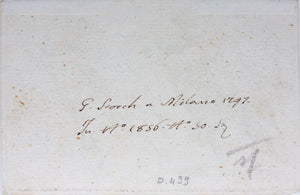 G. Storck a Milano 1797.
In. Nº 1856. Nº 50.
D.439